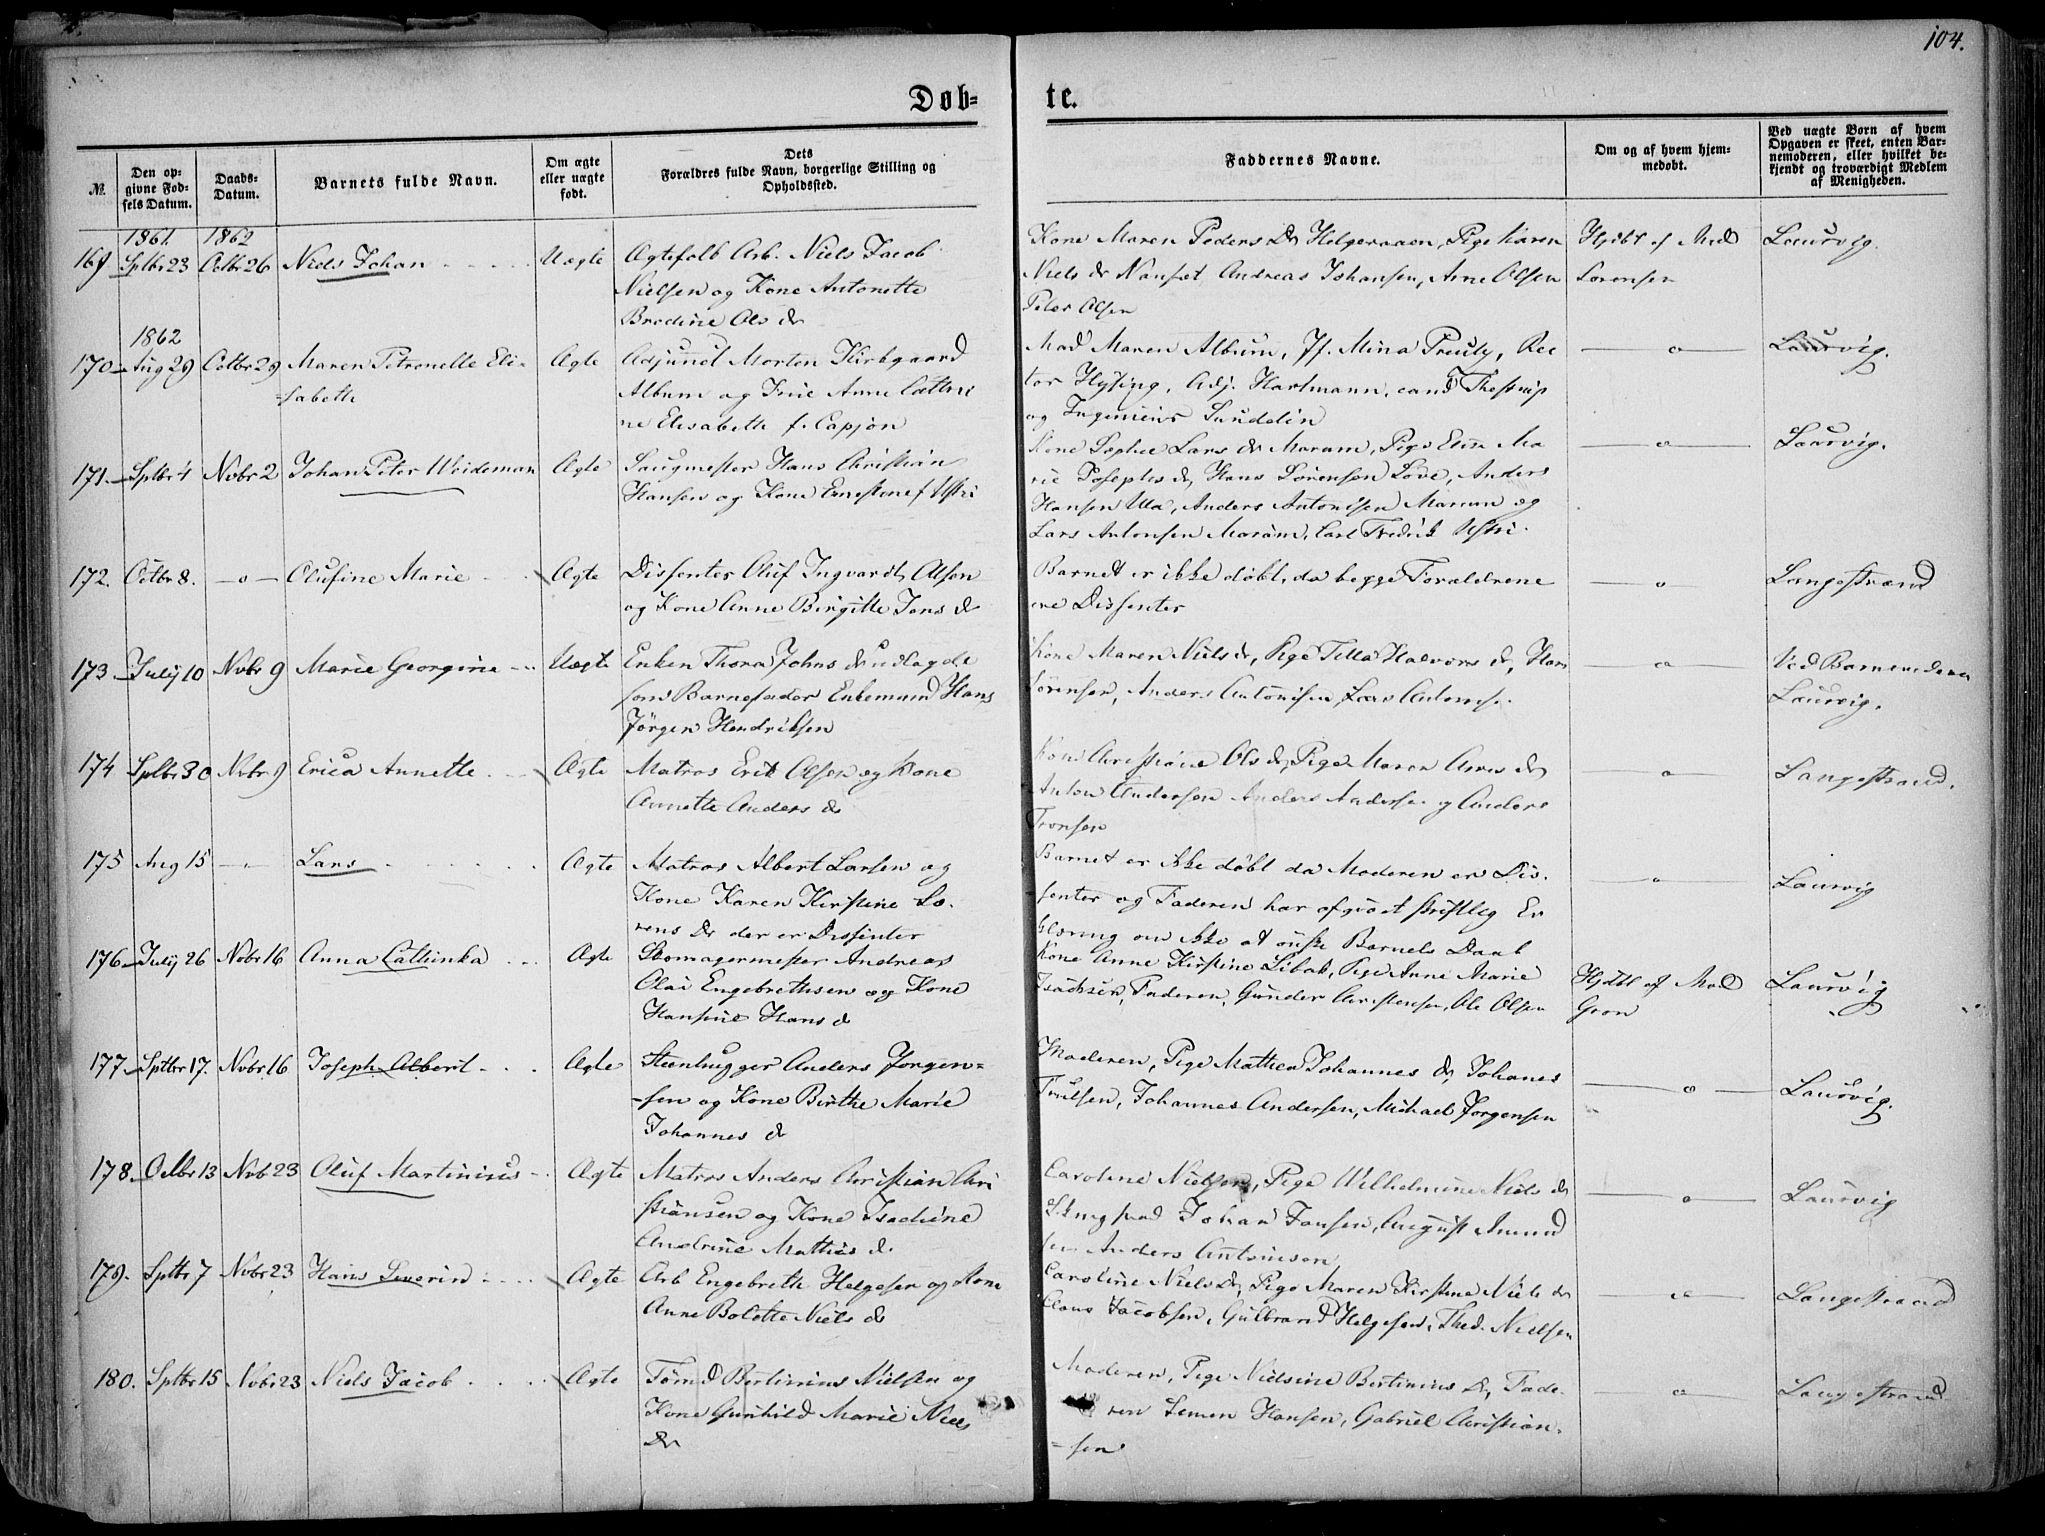 104.
Døb-
te.
№
Den op-
givne Fød-
sels Datum.
Daabs-
Datum.
Barnets fulde Navn.
Om ægte
eller uægte
født.
Dets
Forældres fulde Navn, borgerlige Stilling og
Opholdssted.
Faddernes Navne.
Om og af hvem hjem-
medøbt.
Ved uægte Børn af hvem
Opgaven er skeet, enten Bar-
nemoderen, eller hvilket be-
kjendt og troværdigt Medlem
af Menigheden.
1861. 1862
169 Sptbr 23 Octbr 26 Niels Johan Uægte Ægtefolk Arb. Niels Jacob
Nielsen og Kone Antonette
Bredine Ols dr
Kone Maren Peders Dr Helgeraaen, Pige Karen
Niels dr Nanset Andreas Johansen, Arne Olsen
Peder Olsen
Hjdbt af Mad
Sørensen
Laurvig.
1862
170 Aug 29 Octbr 29 Maren Petronelle Eli-
sabeth
Ægte Adjunct Morten Kirkgaard
Album og Frue Anne Cathri
ne Elisabeth f. Capjon
Mad Maren Album, Jf. Mina Preuty, Rec
tor Hysing, Adj. Hartmann, cand Thestrup
og Ingenieur Sundelin
—o—
Laurvig.
171 Sptbr 4 Novbr 2 Johan Peter Weideman Ægte Saugmester Hans Christian
Hansen og Kone Ernestine f Ustri
Kone Sophie Lars dr Marum, Pige Elen Ma
rie Josephs dr, Hans Sørensen Love, Anders
Hansen Ula, Anders Antonisen Marum og
Lars Antonsen Marum, Carl Fredrik Ustri.
—o—
Laurvig.
172. Octbr 8. —o— Olufine Marie Ægte Dissenter Oluf Ingvardt Olsen
og Kone Anne Birgitte Jens dr
Barnet er ikke døbt, da begge Forældrene
ere Dissenter
—o—
Langestrand
173 July 10 Novbr 9 Marie Georgine Uægte Enken Thora Johns dr udlagde
som Barnefader Enkemand Hans
Jörgen Hendriksen
Kone Maren Niels dr, Pige Tella Halvors dr, Hans
Sörensen, Anders Antonisen, Lars Antonsen.
—o—
Ved Barnemoderen
Laurvig.
174 Sptbr 30 Novbr 9 Erica Annette Ægte Matros Erik Olsen og Kone
Annette Anders dr
Kone Christiane Ols dr, Pige Maren Arnes dr
Anton Andersen Anders Andersen og Anders
Tronsen
—o—
Langestrand.
175 Aug 15 Lars Ægte Matros Albert Larsen og
Kone Karen Kirstine Lo-
rens Dr der er Dissenter
Barnet er ikke døbt da Moderen er Dis-
senter og Faderen har afgivet skriftlig Er
klæring om ikke at ønske Barnets Daab
—o—
Laurvig
176 July 26 Novbr 16 Anna Cathinka Ægte Skomagermester Andreas
Olai Engebrethsen og Kone
Hansine Hans dr
Kone Anne Kirstine Libak, Pige Anne Marie
Isachsen, Faderen, Gunder Christensen, Ole Olsen
Hjdbt af Mad
Gron
Laurvig
177 Sptbr 17. Novbr 16 Joseph Albert Ægte Steenhugger Anders Jorgen-
sen og Kone Birthe Marie
Johannes dr
Moderen, Pige Mathea Johannes dr, Johanes
Truilsen, Johannes Andersen, Michael Jorgensen
—o—
Laurvig.
178. Octbr 13 Novb 23 Oluf Martinius Ægte Matros Anders Christian Chri
stiansen og Kone Isachine
Andrine Mathis dr
Caroline Nielsen, Pige Wilhelmine Niels dr
Johan Jansen, August Amund
sen Anders Antonisen
—o—
Laurvig
179. Sptbr 7 Novbr 23 Hans Severin Ægte Arb Engebreth Helgesen og Kone
Anne Bolette Niels dr
Caroline Niels Dr, Pige Maren Kirstine Niels dr
Claus Jacobsen, Gulbrand Helgesen, Thed. Nielsen
—o—
Langestrand
180. Sptbr 15 Novbr 23 Niels Jacob Ægte Tömd Bertinius Nielsen og
Kone Gunhild Marie Niels
Dr
Moderen, Pige Nielsine Bertinius Dr, Fade-
ren Simen Hansen, Gabriel Christian-
-sen
—o—
Langestrand